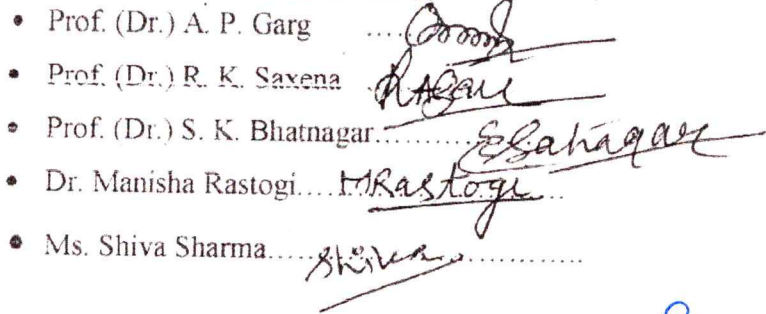 • Prof. (Dr.) A. P. Garg ....
• Prof. (Dr.) R. K. Saxena
• Prof. (Dr.) S. K. Bhatnagar..........
• Dr. Manisha Rastogi.... MRastogi...
• Ms. Shiva Sharma..... Shiva..............